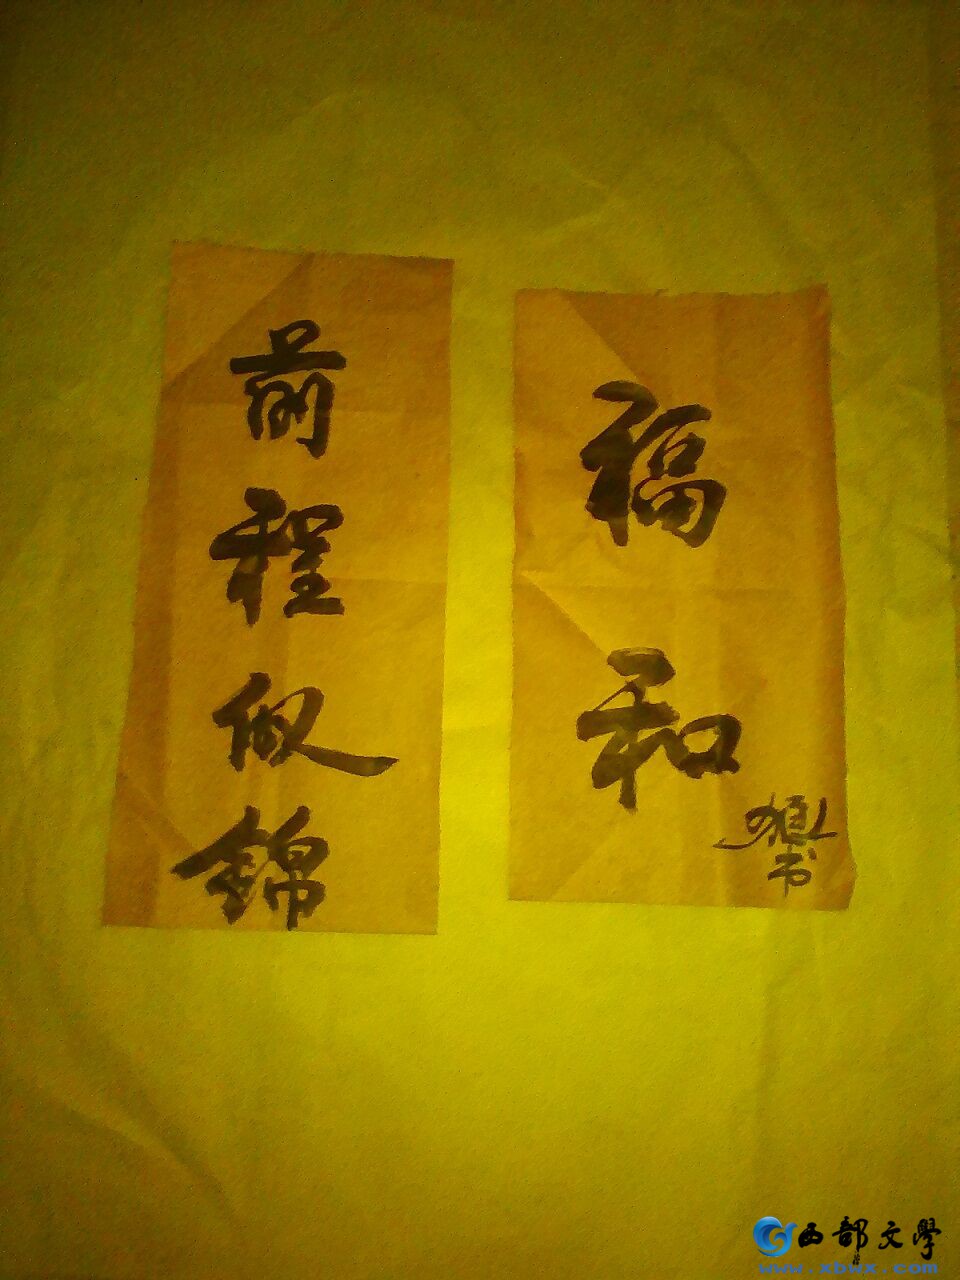 福和
书
前程似錦
西部文學
www.xbwx.com